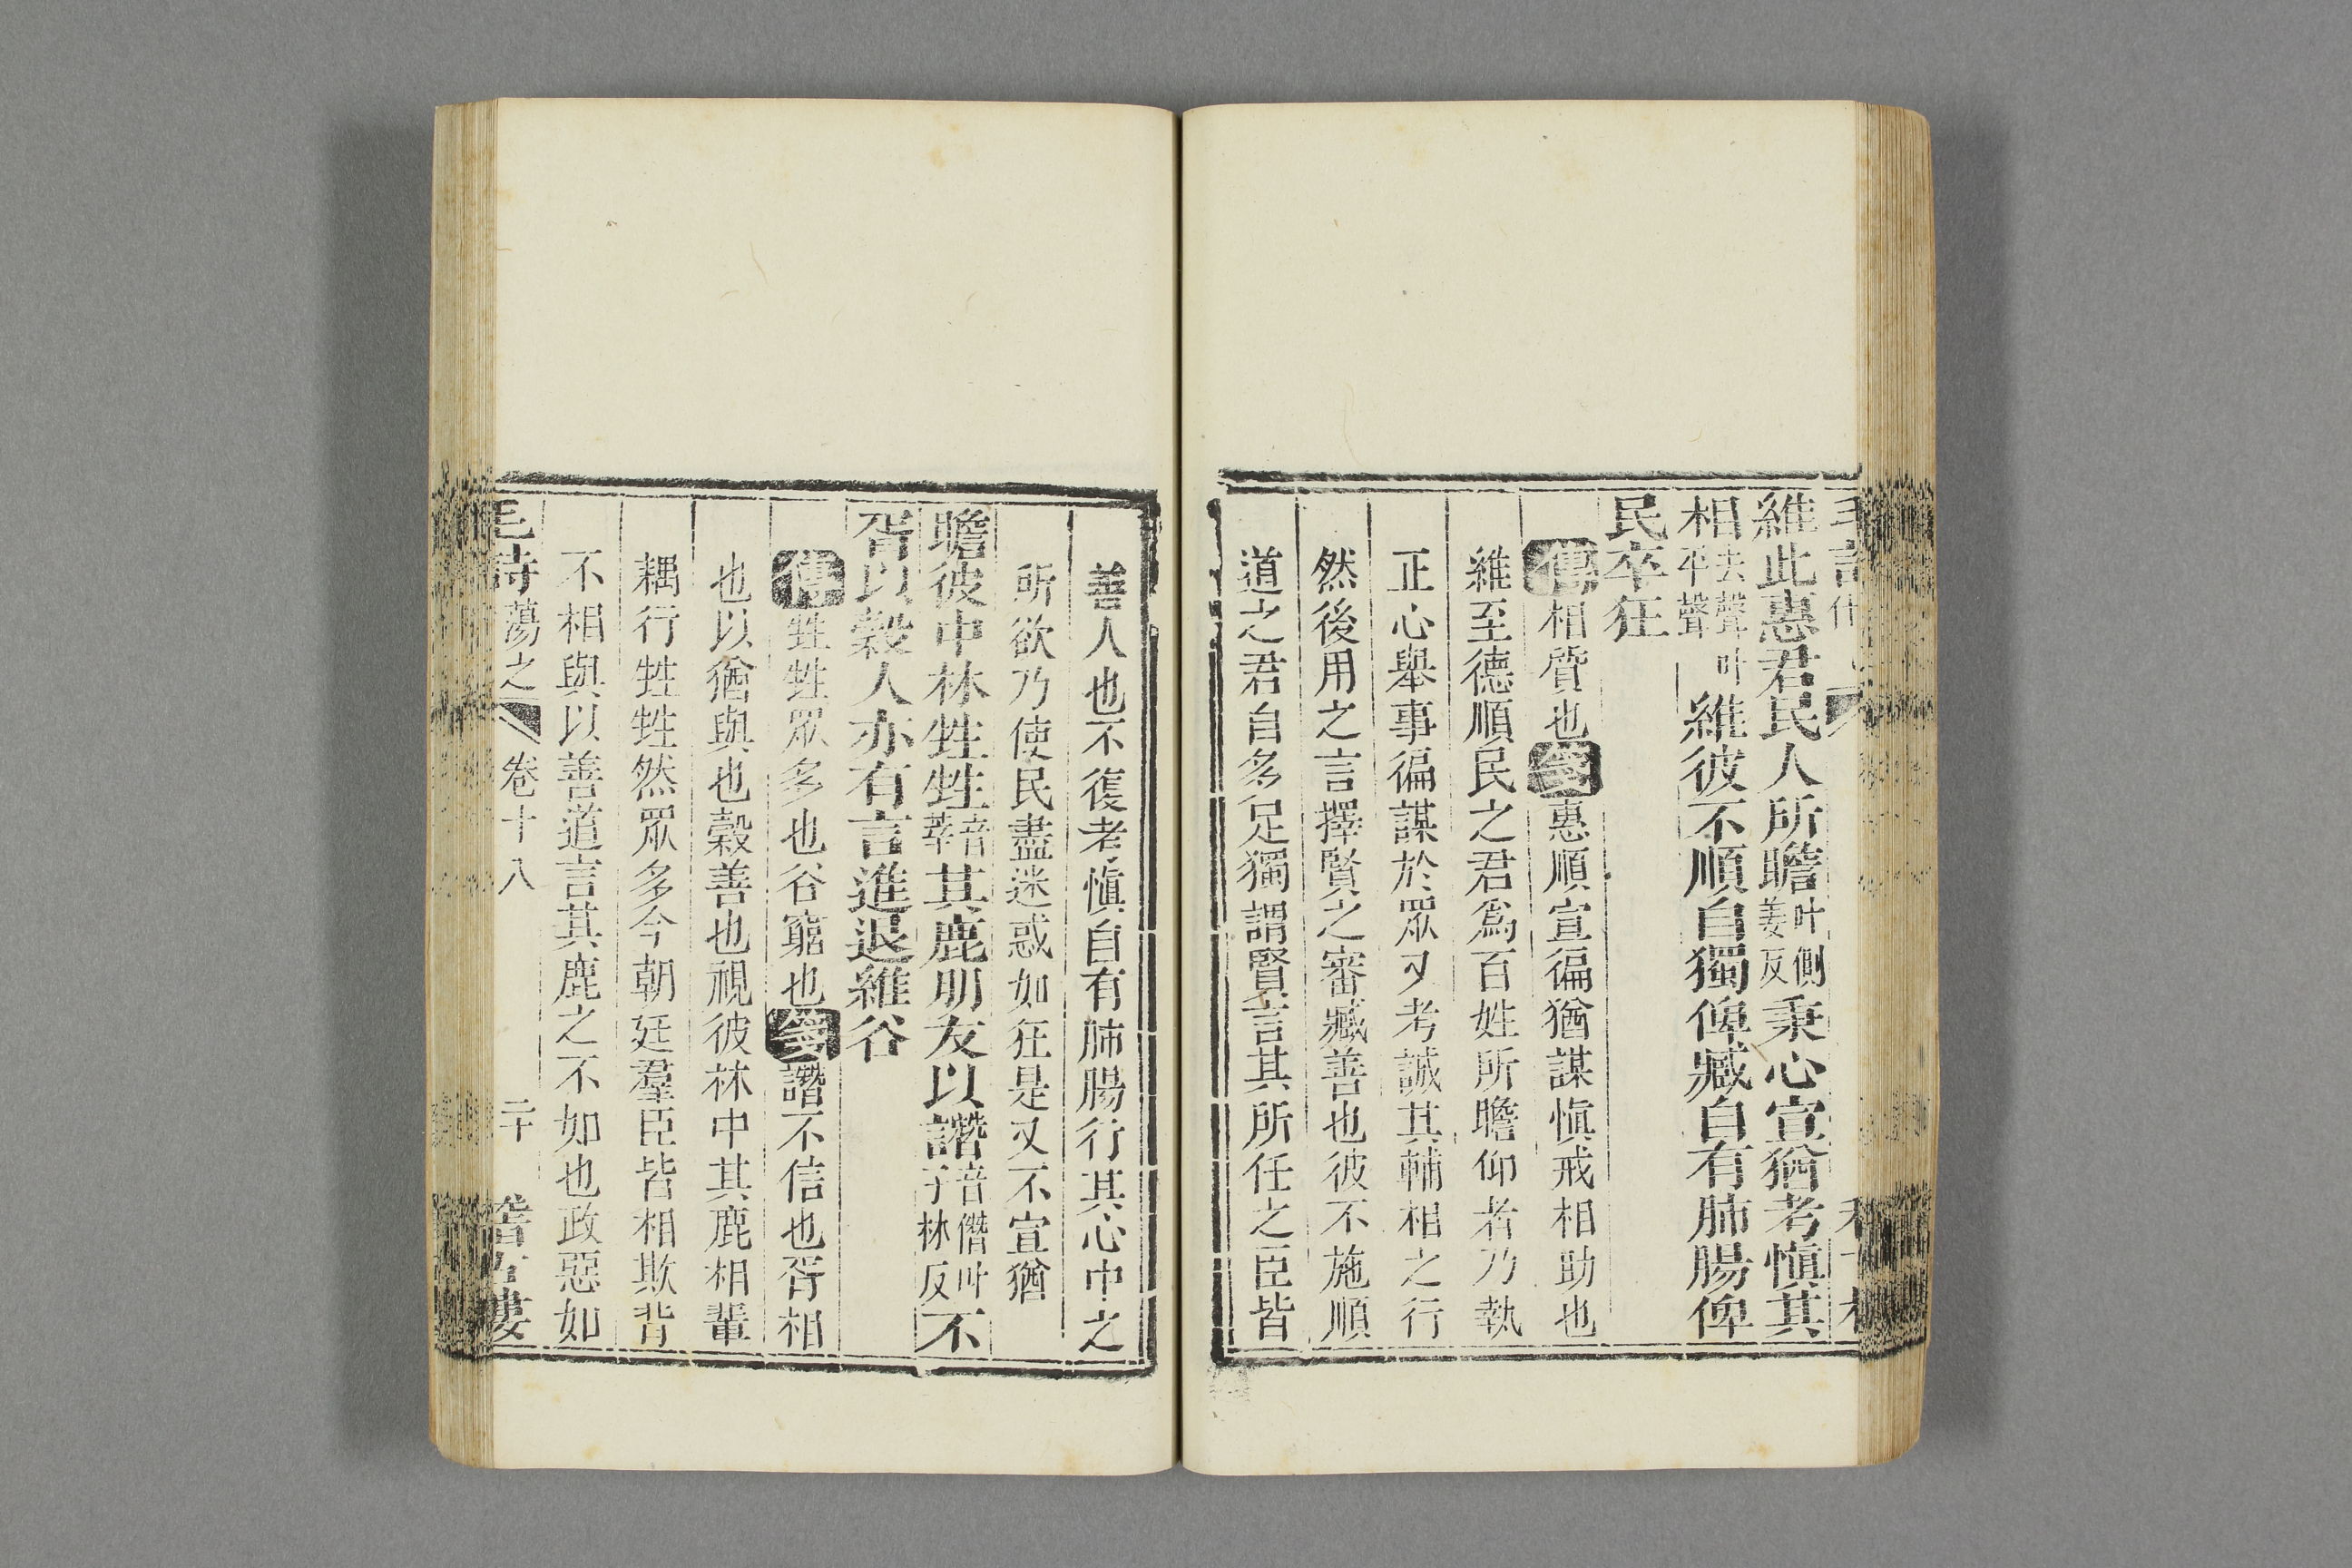 維此惠君民人所瞻叶側姜反秉心宣猶考愼其
相去聲叶平聲維彼不順自獨俾臧自有肺腸俾
民卒狂
傳相質也箋惠順宣徧猶謀愼戒相助也
維至德順民之君爲百姓所瞻仰者乃執
正心舉事徧謀於眾又考誠其輔相之行
然後用之言擇賢之審臧善也彼不施順
道之君自多足獨謂賢言其所任之臣皆
善人也不復考愼自有肺腸行其心中之
所欲乃使民盡迷惑如狂是又不宣猶
瞻彼中林甡甡音莘其鹿朋友以譖音僭叶子林反不
胥以榖人亦有言進退維谷
傳甡甡眾多也谷窮也箋譖不信也胥相
也以猶與也榖善也視彼林中其鹿相輩
耦行甡甡然眾多今朝廷羣臣皆相欺背
不相與以善道言其鹿之不如也政惡如
毛詩蕩之 卷十八 二十